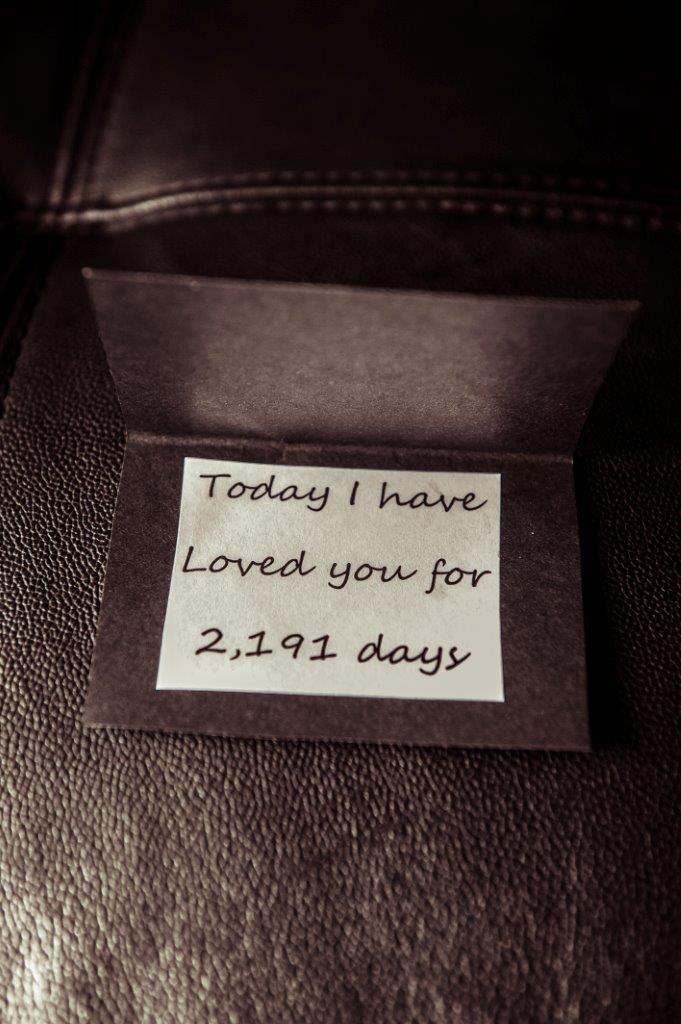 Today I have
Loved you for
2,191 days